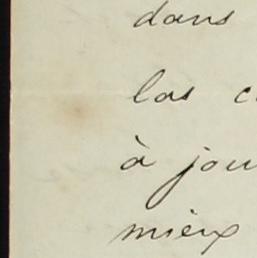 dans
las c
à jou
mieux